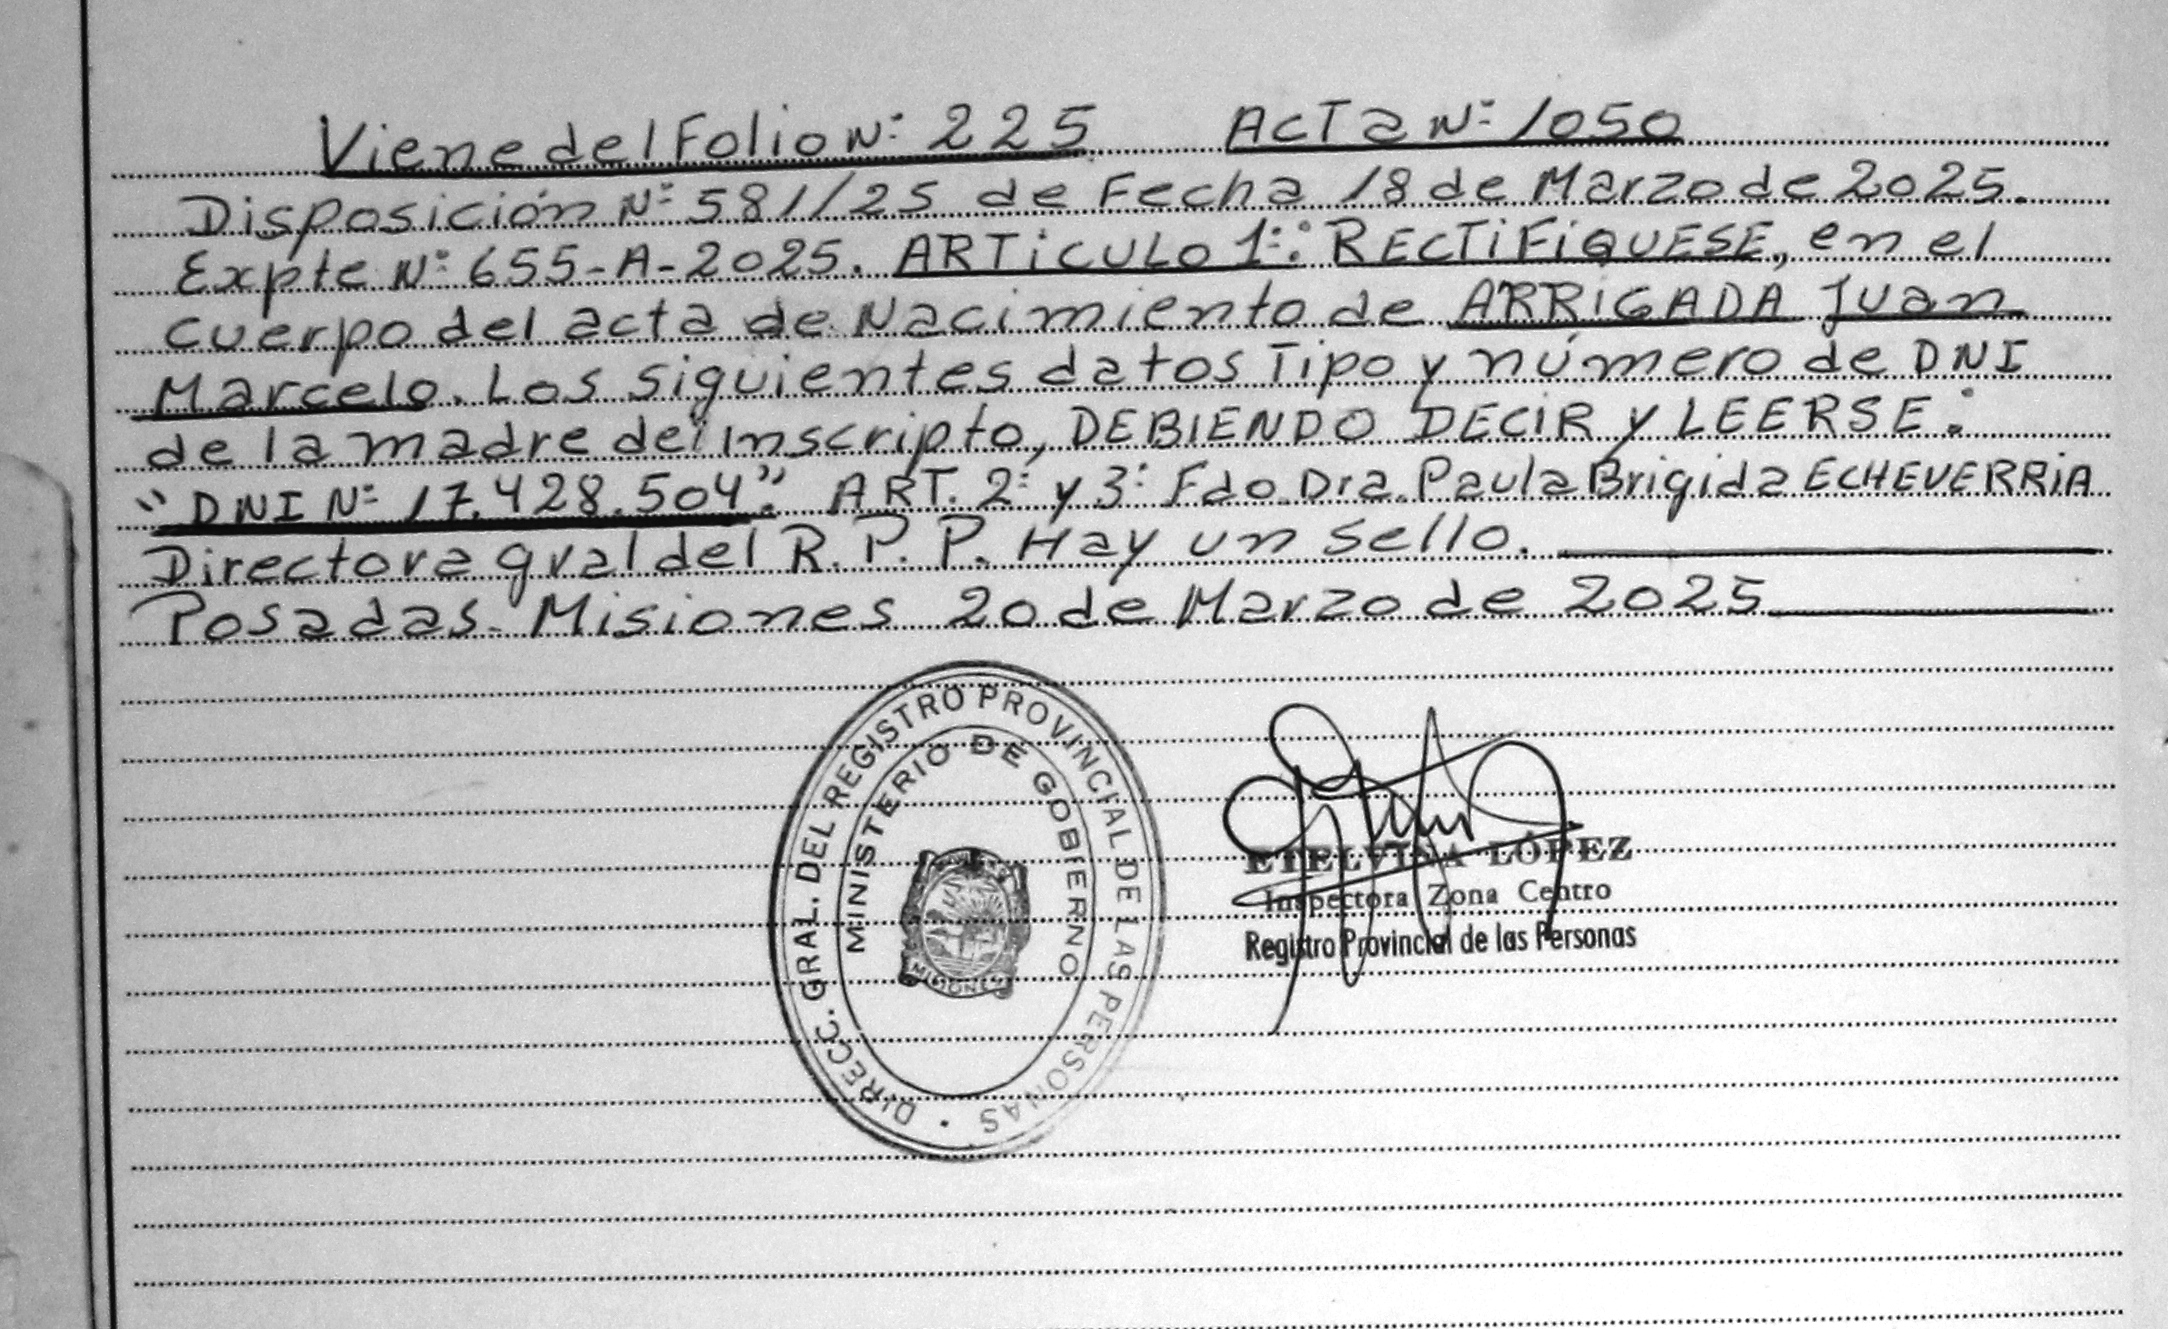 Viene del Folio Nº 225 ACTa Nº 1050
Disposición Nº 581/25 de Fecha 18 de Marzo de 2025.
Expte Nº 655-A-2025. ARTiCULO 1º: RECTiFiQUESE, en el
cuerpo del acta de Nacimiento de ARRiGADA Juan
Marcelo. Los siguientes datos Tipo y número de DNI
de la madre del Inscripto, DEBIENDO DECIR y LEERSE:
"DNI Nº 17.428.504". ART. 2º y 3º Fdo. Dra. Paula Brigida ECHEVERRiA
Directora gral del R. P. P. Hay un sello.
Posadas- Misiones 20 de Marzo de 2025
DIRECC. GRAL. DEL REGISTRO PROVINCIAL DE LAS PERSONAS
MINISTERIO DE GOBIERNO
MISIONES
ETELVINA LÓPEZ
Inspectora Zona Centro
Registro Provincial de las Personas